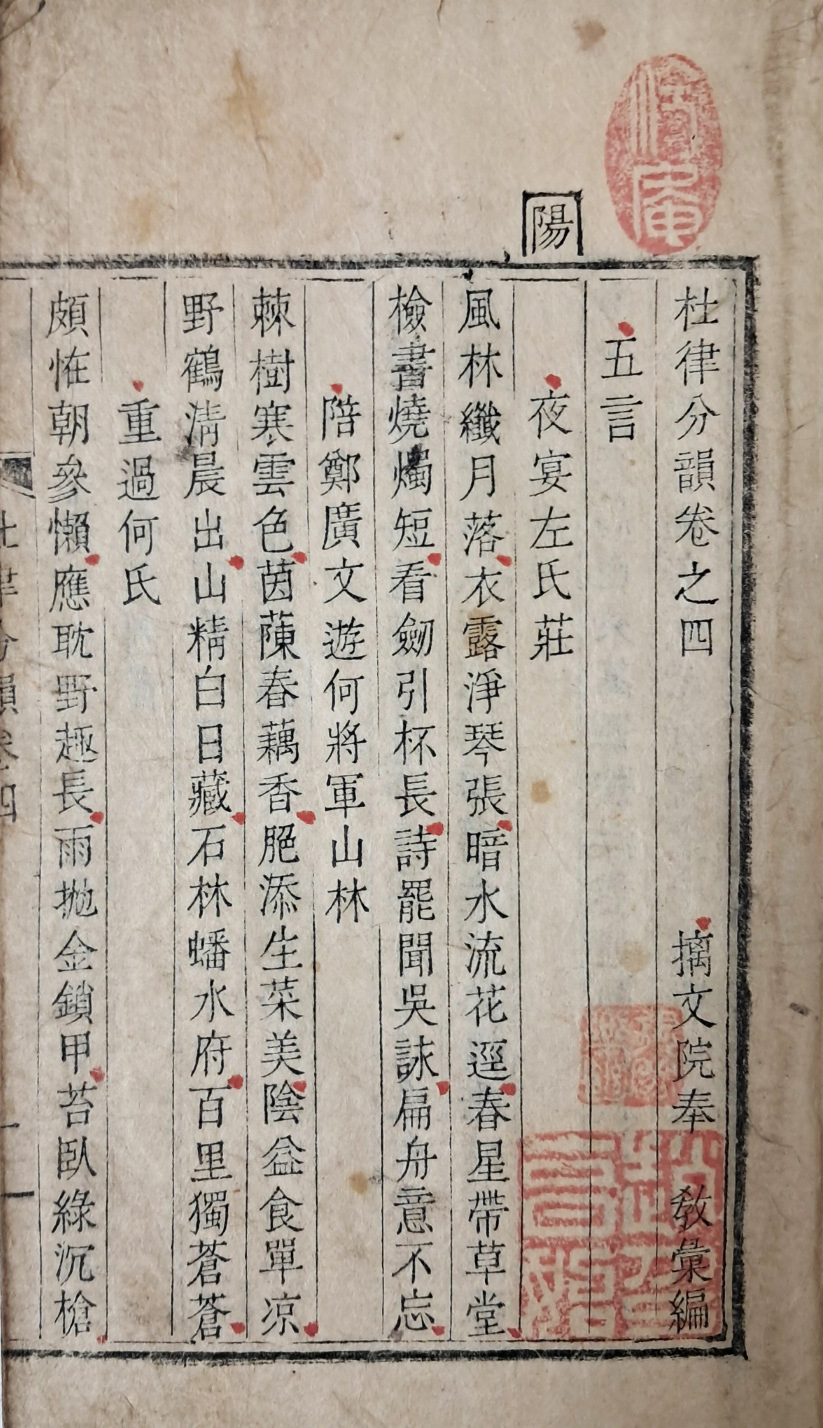 陽
杜律分韻卷之四 摛文院奉 敎彙編
五言
夜宴左氏莊
風林纖月落衣露淨琴張暗水流花逕春星帶草堂
檢書燒燭短看劒引杯長詩罷聞吳詠扁舟意不忘
陪鄭廣文遊何將軍山林
棘樹寒雲色茵蔯春藕香脆添生菜美陰益食單凉
野鶴淸晨出山精白日藏石林蟠水府百里獨蒼蒼
重過何氏
頗恠朝參懶應耽野趣長雨抛金鎖甲苔臥綠沉槍
杜律分韻卷四
一